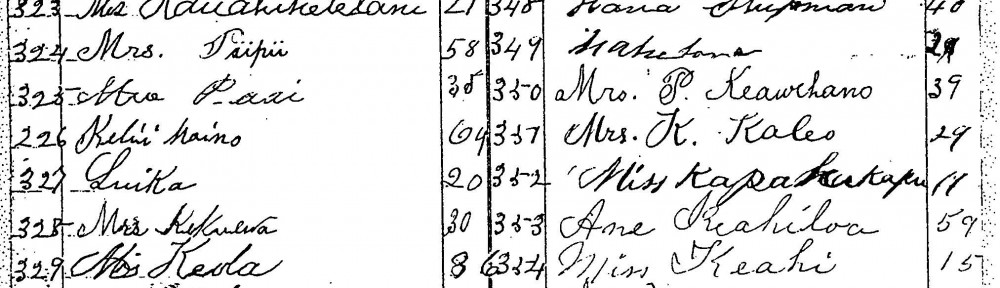 323 Mrs 21 348 Hana Shipman 40
324 Mrs. Tsipii 58 349
325 35 350 Mrs. P. Keawehano 39
226 Kelii maino 64 351 Mrs. K. Kaleo 29
327 Luika 20 352 Miss Kapahukapu 11
328 Mrs Kekuewa 30 353 Ane Keahiloa 59
329 Keola 86 354 Miss Keahi 15